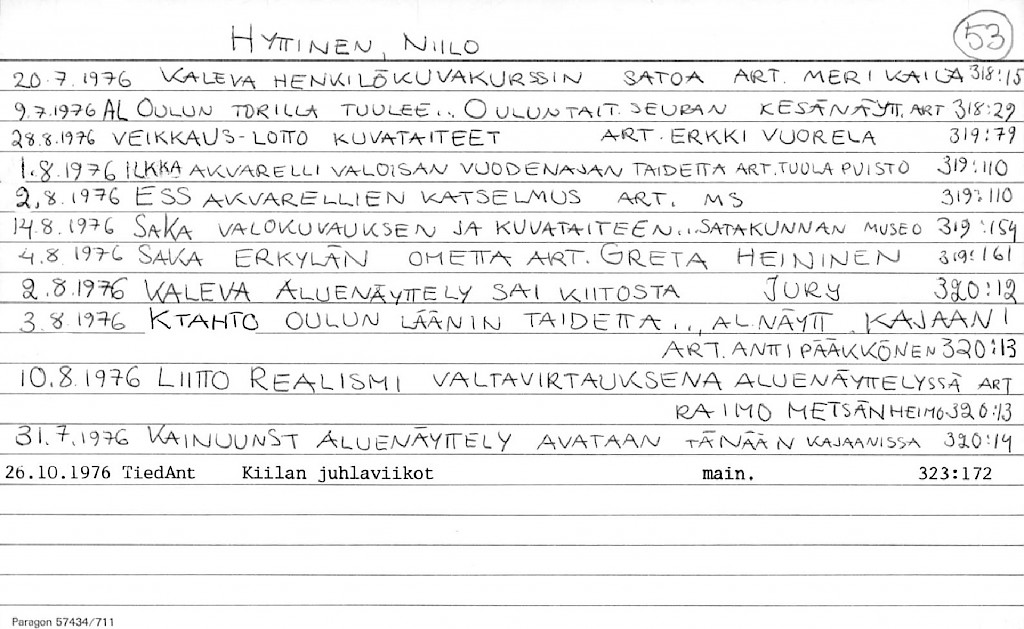 HYTTINEN, NIILO 53
20.7.1976 KALEVA HENKILÖKUVAKURSSIN SATOA ART. MERI KAILA 318:15
9.7.1976 AL OULUN TORILLA TUULEE... OULUN TAIT. SEURAN KESÄNÄYTT. ART 318:29
28.8.1976 VEIKKAUS-LOTTO KUVATAITEET ART. ERKKI VUORELA 319:79
1.8.1976 ILKKA AKVARELLI VALOISAN VUODENAJAN TAIDETTA ART. TUULA PUISTO 319:110
2.8.1976 ESS AKVARELLIEN KATSELMUS ART. MS 319:110
14.8.1976 SAKA VALOKUVAUKSEN JA KUVATAITEEN... SATAKUNNAN MUSEO 319:154
4.8.1976 SAKA ERKYLÄN OMETTA ART. GRETA HEININEN 319:161
2.8.1976 KALEVA ALUENÄYTTELY SAI KIITOSTA JURY 320:12
3.8.1976 KTAHTO OULUN LÄÄNIN TAIDETTA... AL.NÄYTT. KAJAANI
ART. ANTTI PÄÄKKÖNEN 320:13
10.8.1976 LIITTO REALISMI VALTAVIRTAUKSENA ALUENÄYTTELYSSÄ ART
RAIMO METSÄNHEIMO 320:13
31.7.1976 KAINUUNST ALUENÄYTTELY AVATAAN TÄNÄÄN KAJAANISSA 320:14
26.10.1976 TiedAnt Kiilan juhlaviikot main. 323:172
Paragon 57434/711